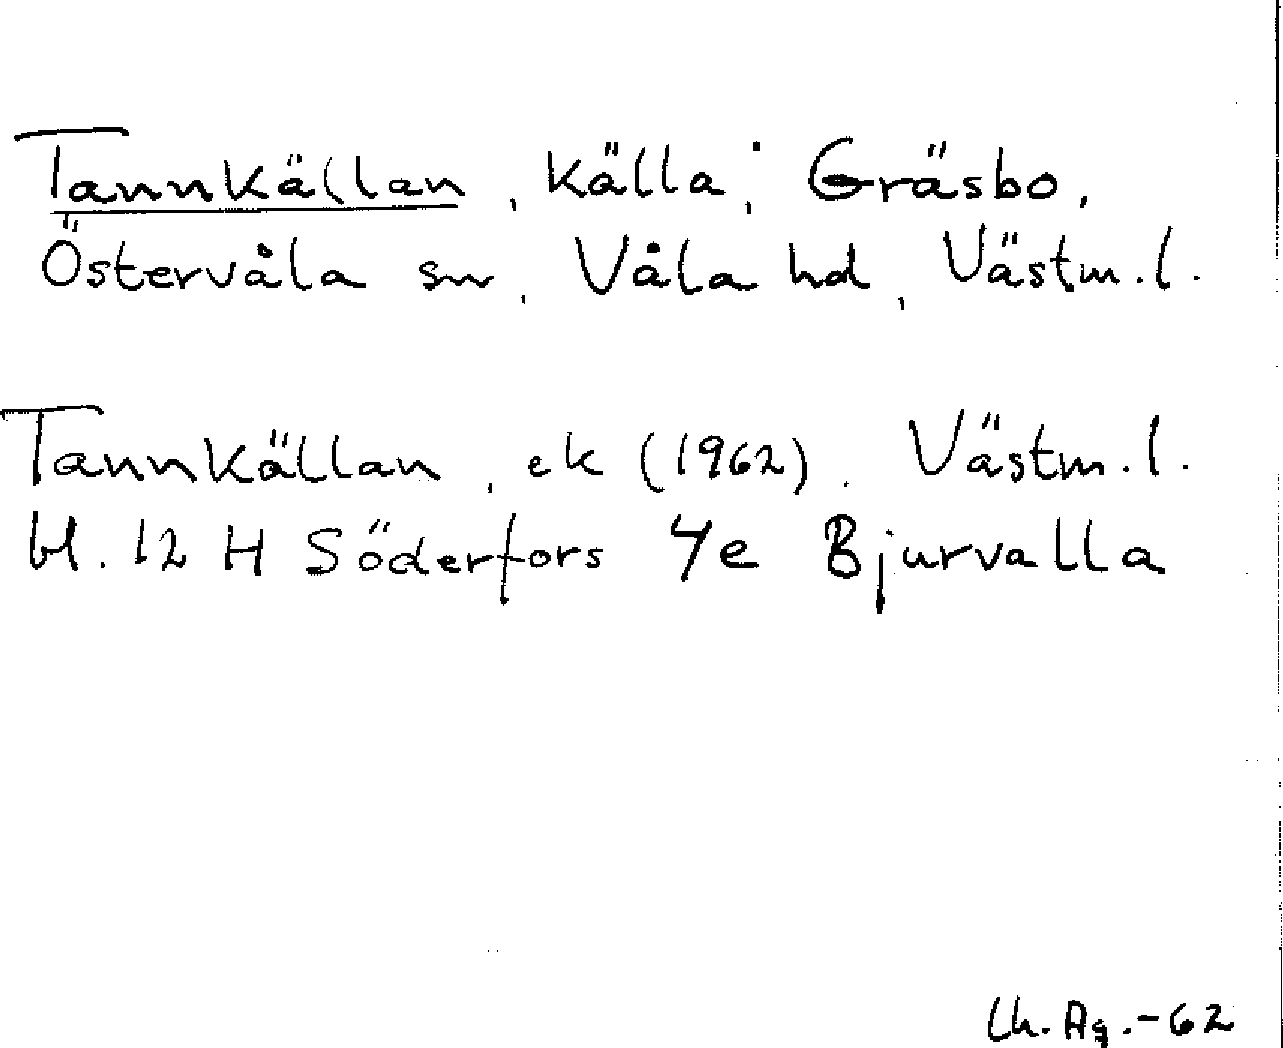 Tannkällan, källa; Gräsbo,
Östervåla sn, Våla hd, Västm. l.
Tannkällan, ek (1962). Västm. l.
bl. 12 H Söderfors 4e Bjurvalla
Ch. Ag. -62